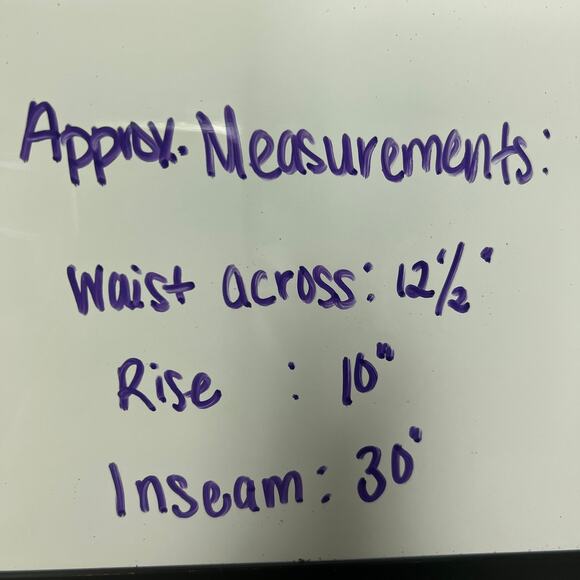 Approx. Measurements:
Waist across: 12 1/2"
Rise : 10"
Inseam: 30"